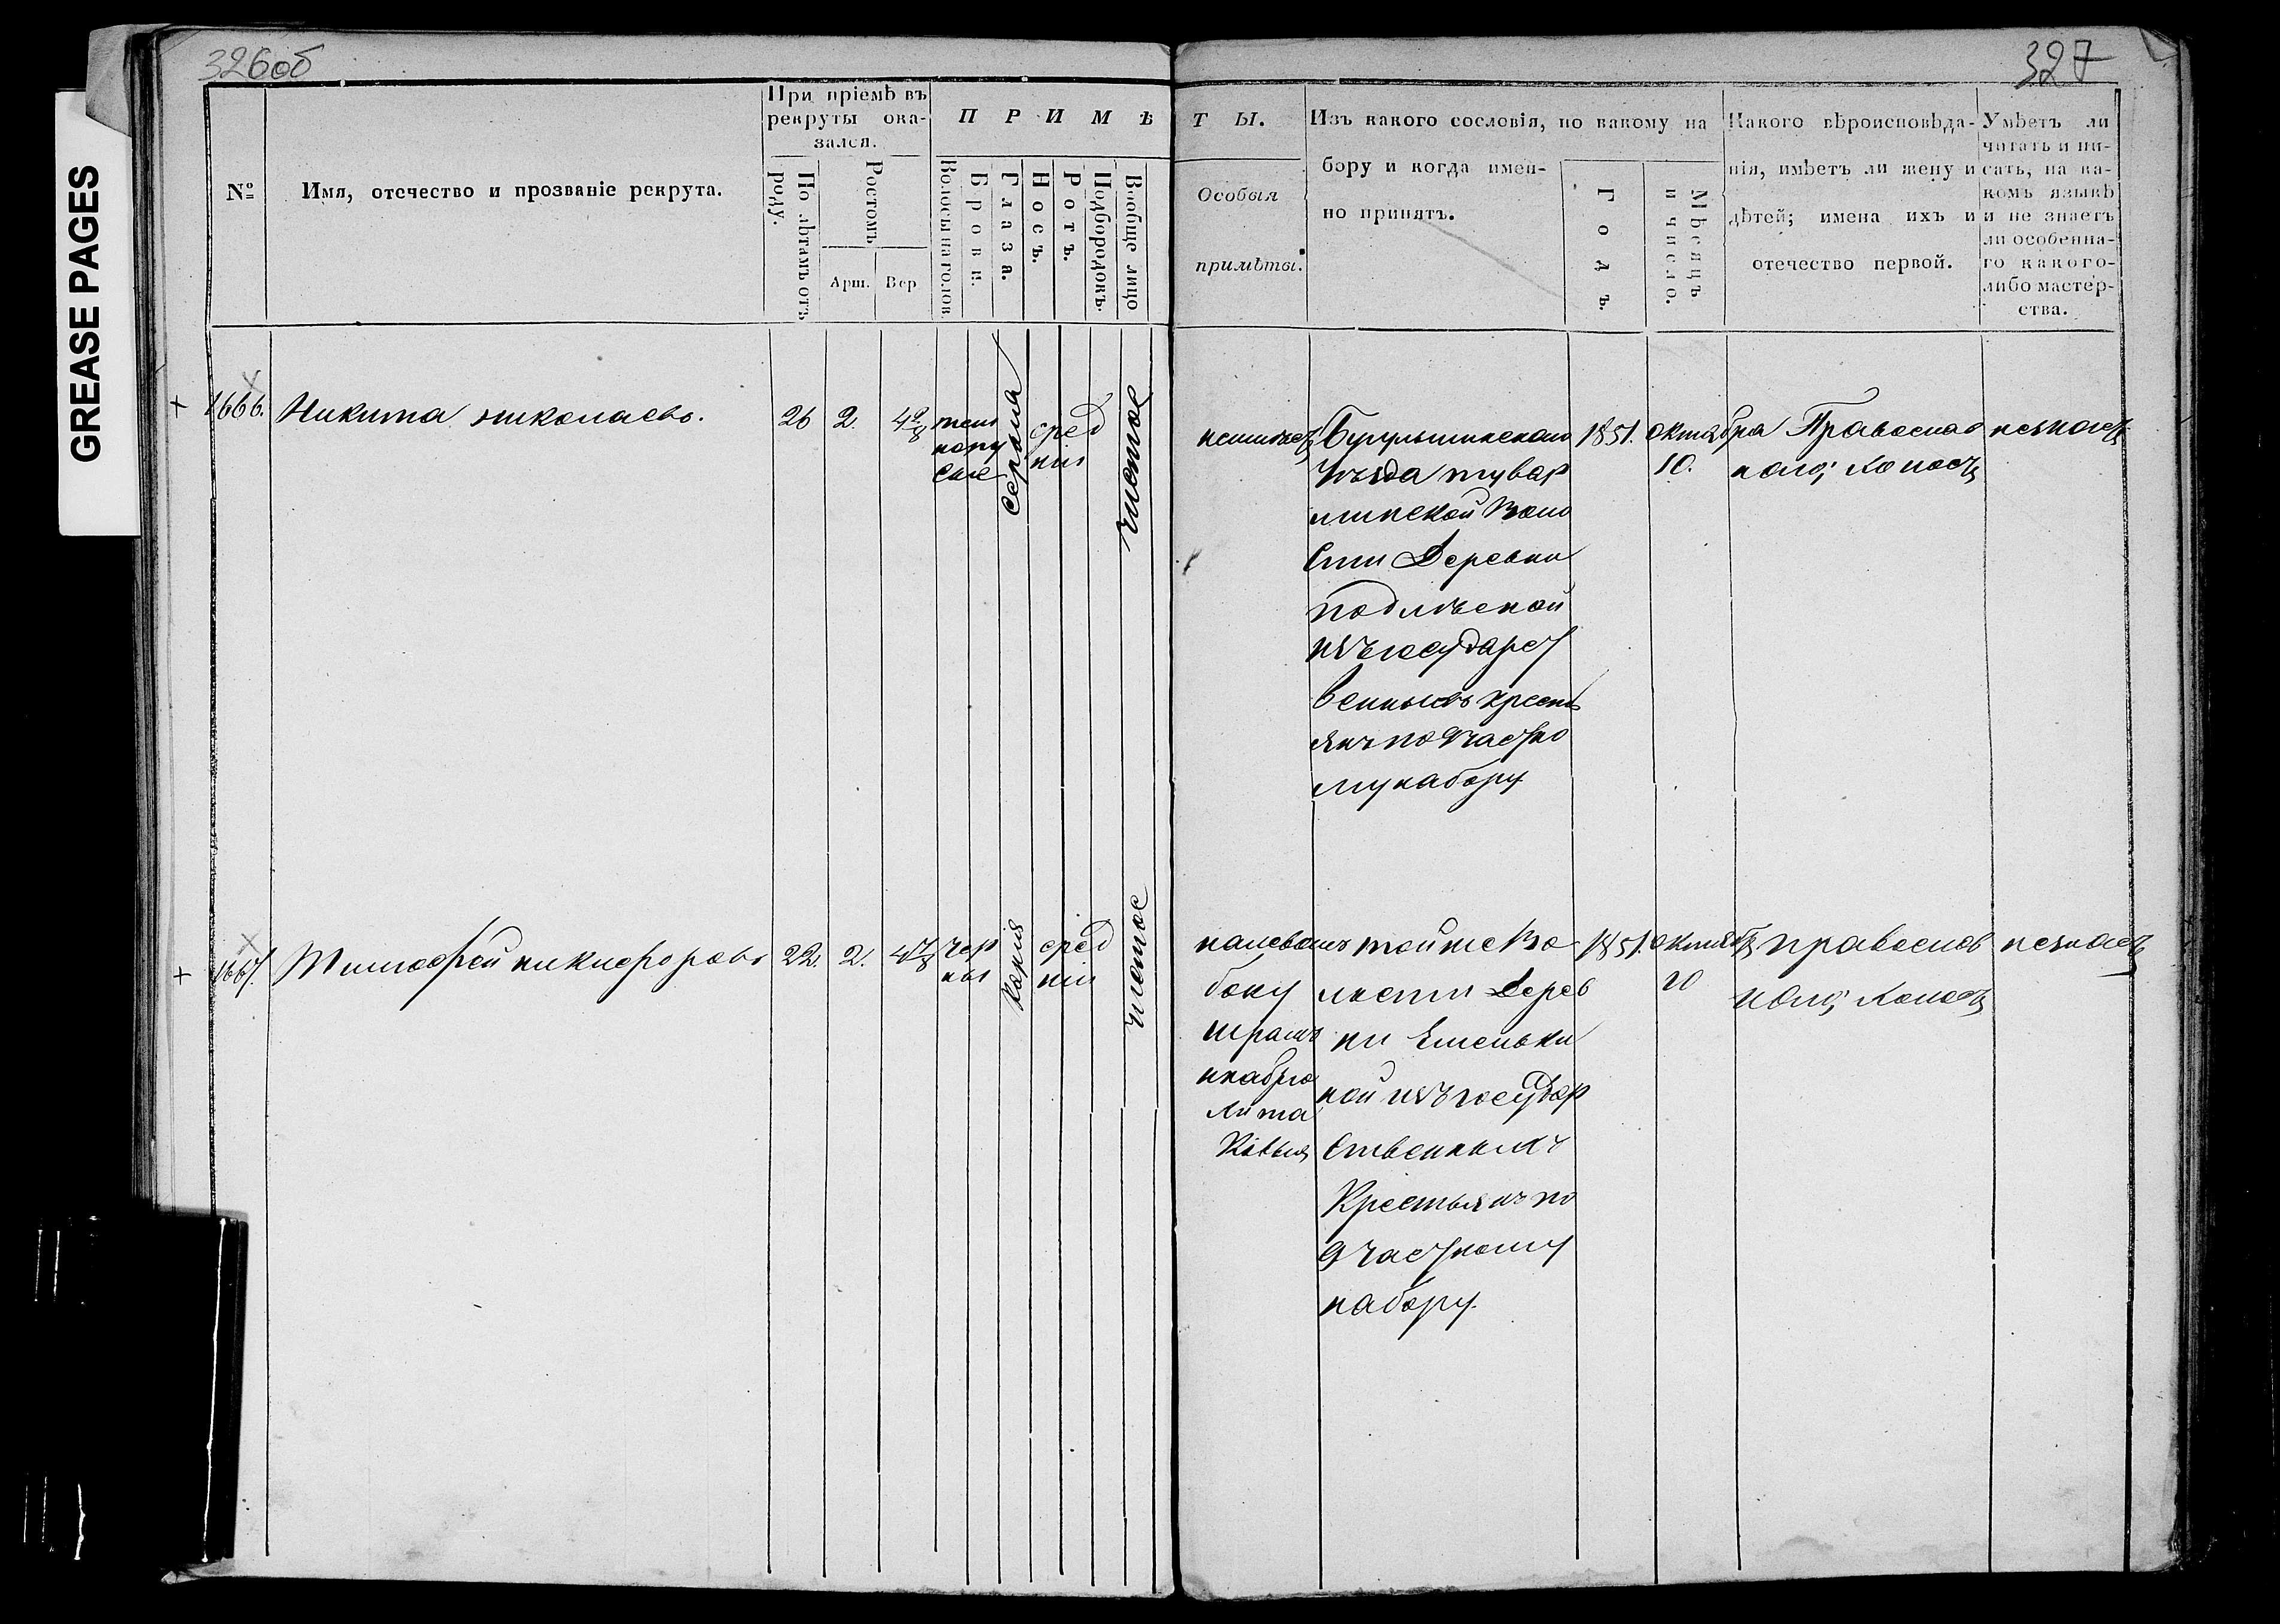 GREASE PAGES
326об
327
При пріемѣ въ
рекруты ока-
зался.
П Р И М Ѣ
Т Ы.
№
Имя, отечество и прозваніе рекрута.
По лѣтамъ отъ
роду.
Ростомъ
Арш.
Вер
Волосы на голов
Брови.
Глаза.
Носъ.
Ротъ.
Подбородокъ.
Вообще лицо
Особыя
примѣты.
Изъ какого сословія, по какому на
бору и когда имен-
но принятъ.
Годъ.
Мѣсяцъ
и число.
Какого вѣроисповѣда-
нія, имѣетъ ли жену и
дѣтей; имена ихъ и
отечество первой.
Умѣетъ ли
читать и пи-
сать, на ка-
комъ языкѣ
и не знаетъ
ли особенна-
го какого-
либо мастер-
ства.
1666.
Никита николаевъ.
26
2.
4 2/8
темно
рус
сые
серыя
сред
нии
чистое
неимѣет
Бугульминскаго
Уѣзда тувар
минской Воло
сти Деревни
Подлѣсной
изъ государст
венныхъ кресть
янъ по Участко
му набору
1851.
октября
10.
Православ
наго, холостъ
незнаетъ
1667.
Тимофей никифоровъ
22.
2.
4 7/8
чер
ны
карія
сред
нии
чистое
налевомъ
боку
шрамъ
той же Во
лости Дерев
ни
ной изъ государ
ственныхъ
Крестьянъ по
Участкому
набору.
1851.
октября
10
православ
наго, холостъ
незнаетъ